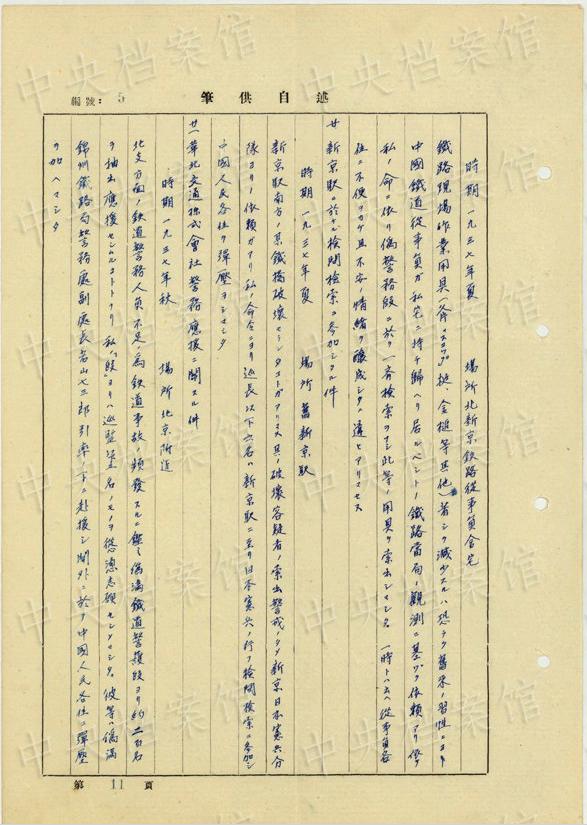 編號：5
筆供自述
時期 一九三七年夏 場所 北新京鉄路從事員舎宅
鐵路現場作業用具(斧、スコップ、挺、金槌等其他)著シク減少スルハ恐ラク舊来ノ習性ニヨリ
中國鐵道從事員ガ私宅ニ持チ歸ヘリ居ルベシトノ鐵路當局ノ観測ニ基ヅク依頼アリ
私ノ命ニ依リ偽警務段ニ於テ一斉検索ヲナシ此等ノ用具ヲ索出シマシタ 一時トハ云ヘ從事員各
位ニ不便ヲカケ且不安ノ情緒ヲ醸成シタニ違ヒアリマセヌ
廿、新京駅ニ於ケル検問検索ニ参加シタル件
時期 一九三七年夏 場所 舊新京駅
新京駅南方ノ某鐵橋破壊セシタコトガアリマス其ノ破壊容疑者ノ索出警戒ノタメ新京日本憲兵分
隊ヨリノ依頼ガアリ私ノ命令ニヨリ巡長以下六名ハ新京駅ニ至リ日本憲兵ノ行フ検問検索ニ参加シ
中國人民各位ヲ弾壓ヨシマシタ
廿一、華北交通株式會社警務應援ニ関スル件
時期 一九三七年秋 場所 北京附近
北支方面ノ鉄道警務人員不足ノ為鉄道事故ノ頻發スルニ鑑ミ偽満鉄道警護段ヨリ約二百名
ヲ抽出應援セシムルコトトナリ 私ノ段ヨリハ巡監 名ノモノヲ從 志願セシメマシタ。彼等ハ偽満
錦州鐵路局警務處副處長 山七三郎引率ノ下ニ赴援シ関外ニ於テ中國人民各位ニ弾壓
ヲ加ヘマシタ
第 11 頁
中央档案馆